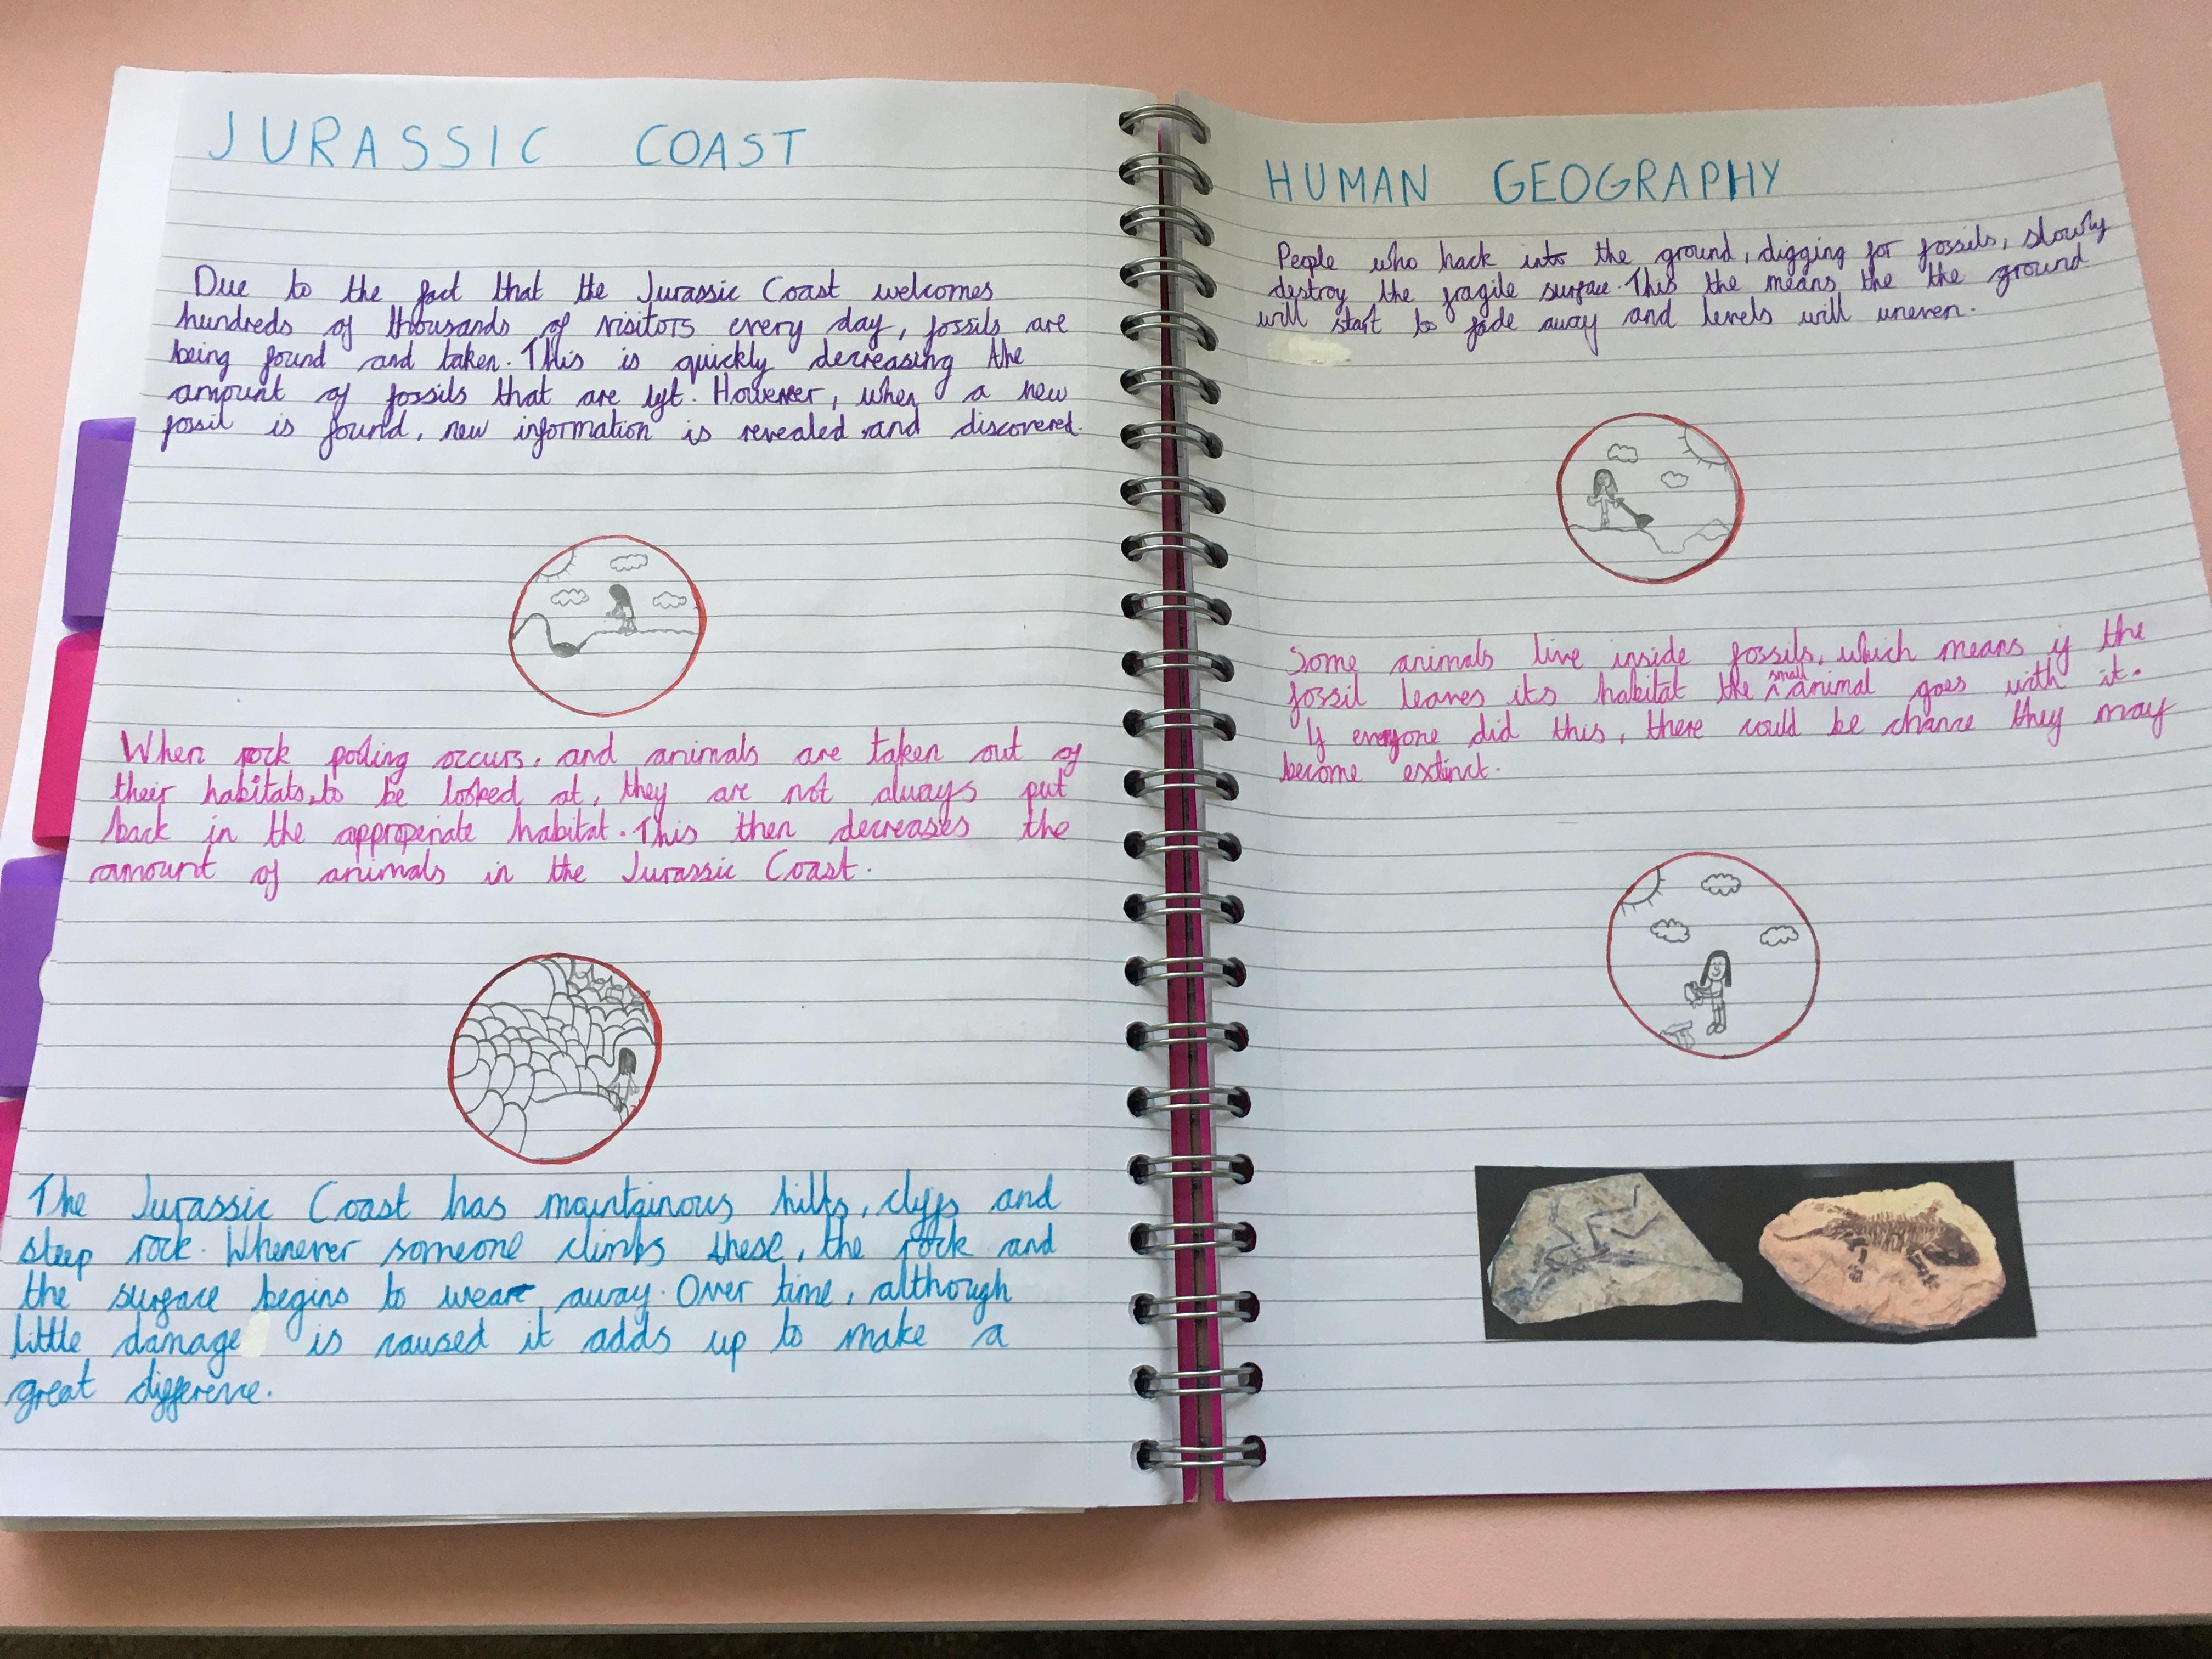 JURASSIC COAST
Due to the fact that the Jurassic Coast welcomes
hundreds of thousands of visitors every day, fossils are
being found and taken. This is quickly decreasing the
amount of fossils that are left. However, when a new
fossil is found, new information is revealed and discovered.
When rock poling occurs, and animals are taken out of
their habitats, to be looked at, they are not always put
back in the approperiate habitat. This then decreases the
amount of animals in the Jurassic Coast.
The Jurassic Coast has maintainous hills, cliffs and
steep rock. Whenever someone climbs these, the rock and
the surface begins to wear away. Over time, although
little damage is caused it adds up to make a
great difference.
HUMAN GEOGRAPHY
People who hack into the ground, digging for fossils, slowly
destroy the fragile surface. This the means the the ground
will start to fade away and levels will uneven.
Some animals live inside fossils, which means if the
fossil leaves its habitat the small animal goes with it.
If everyone did this, there could be chance they may
become extinct.